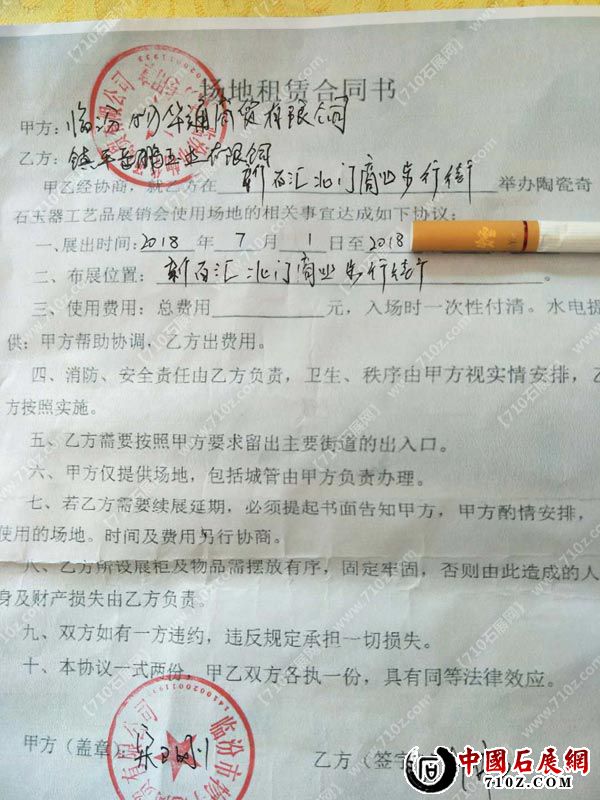 场地租赁合同书
甲方：临汾 华通商贸有限公司
乙方：镇平 鹏玉业有限公司
甲乙经协商，就乙方在 新百汇北门商业步行街 举办陶瓷奇
石玉器工艺品展销会使用场地的相关事宜达成如下协议：
一、展出时间：2018 年 7 月 1 日至 2018
二、布展位置：新百汇北门商业步行街。
三、使用费用：总费用 元，入场时一次性付清。水电提
供：甲方帮助协调，乙方出费用。
四、消防、安全责任由乙方负责，卫生、秩序由甲方视实情安排，乙
方按照实施。
五、乙方需要按照甲方要求留出主要街道的出入口。
六、甲方仅提供场地，包括城管由甲方负责办理。
七、若乙方需要续展延期，必须提起书面告知甲方，甲方酌情安排，
使用的场地。时间及费用另行协商。
八、乙方所设展柜及物品需摆放有序，固定牢固，否则由此造成的人
身及财产损失由乙方负责。
九、双方如有一方违约，违反规定承担一切损失。
十、本协议一式两份，甲乙双方各执一份，具有同等法律效应。
甲方（盖章）：
乙方（签字）
临汾市
贸有限公司
【710石展网】
www.710z.com
中國石展網
710z.com